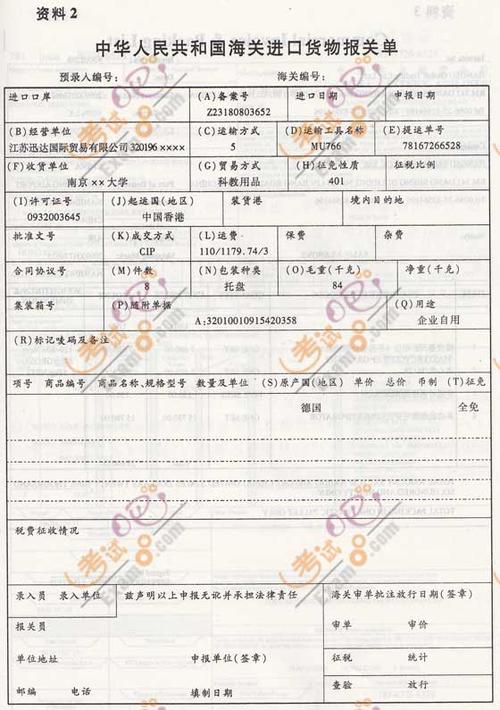 资料2
中华人民共和国海关进口货物报关单
预录入编号： 海关编号：
进口口岸 (A)备案号 进口日期 申报日期
Z23180803652
(B)经营单位 (C)运输方式 (D)运输工具名称 (E)提运单号
江苏迅达国际贸易有限公司320196×××× 5 MU766 78167266528
(F)收货单位 (G)贸易方式 (H)征免性质 征税比例
南京××大学 科教用品 401
(I)许可证号 (J)起运国(地区) 装货港 境内目的地
0932003645 中国香港
批准文号 (K)成交方式 (L)运费 保费 杂费
CIP 110/1179.74/3
合同协议号 (M)件数 (N)包装种类 (O)毛重(千克) 净重(千克)
8 托盘 84
集装箱号 (P)随附单据 (Q)用途
A:32010010915420358 企业自用
(R)标记唛码及备注
项号 商品编号 商品名称、规格型号 数量及单位 (S)原产国(地区) 单价 总价 币制 (T)征免
德国 全免
税费征收情况
录入员 录入单位 兹声明以上申报无讹并承担法律责任 海关审单批注放行日期(签章)
报关员 审单 审价
单位地址 申报单位(签章) 征税 统计
邮编 电话 填制日期 查验 放行
考试吧
Exam8.com